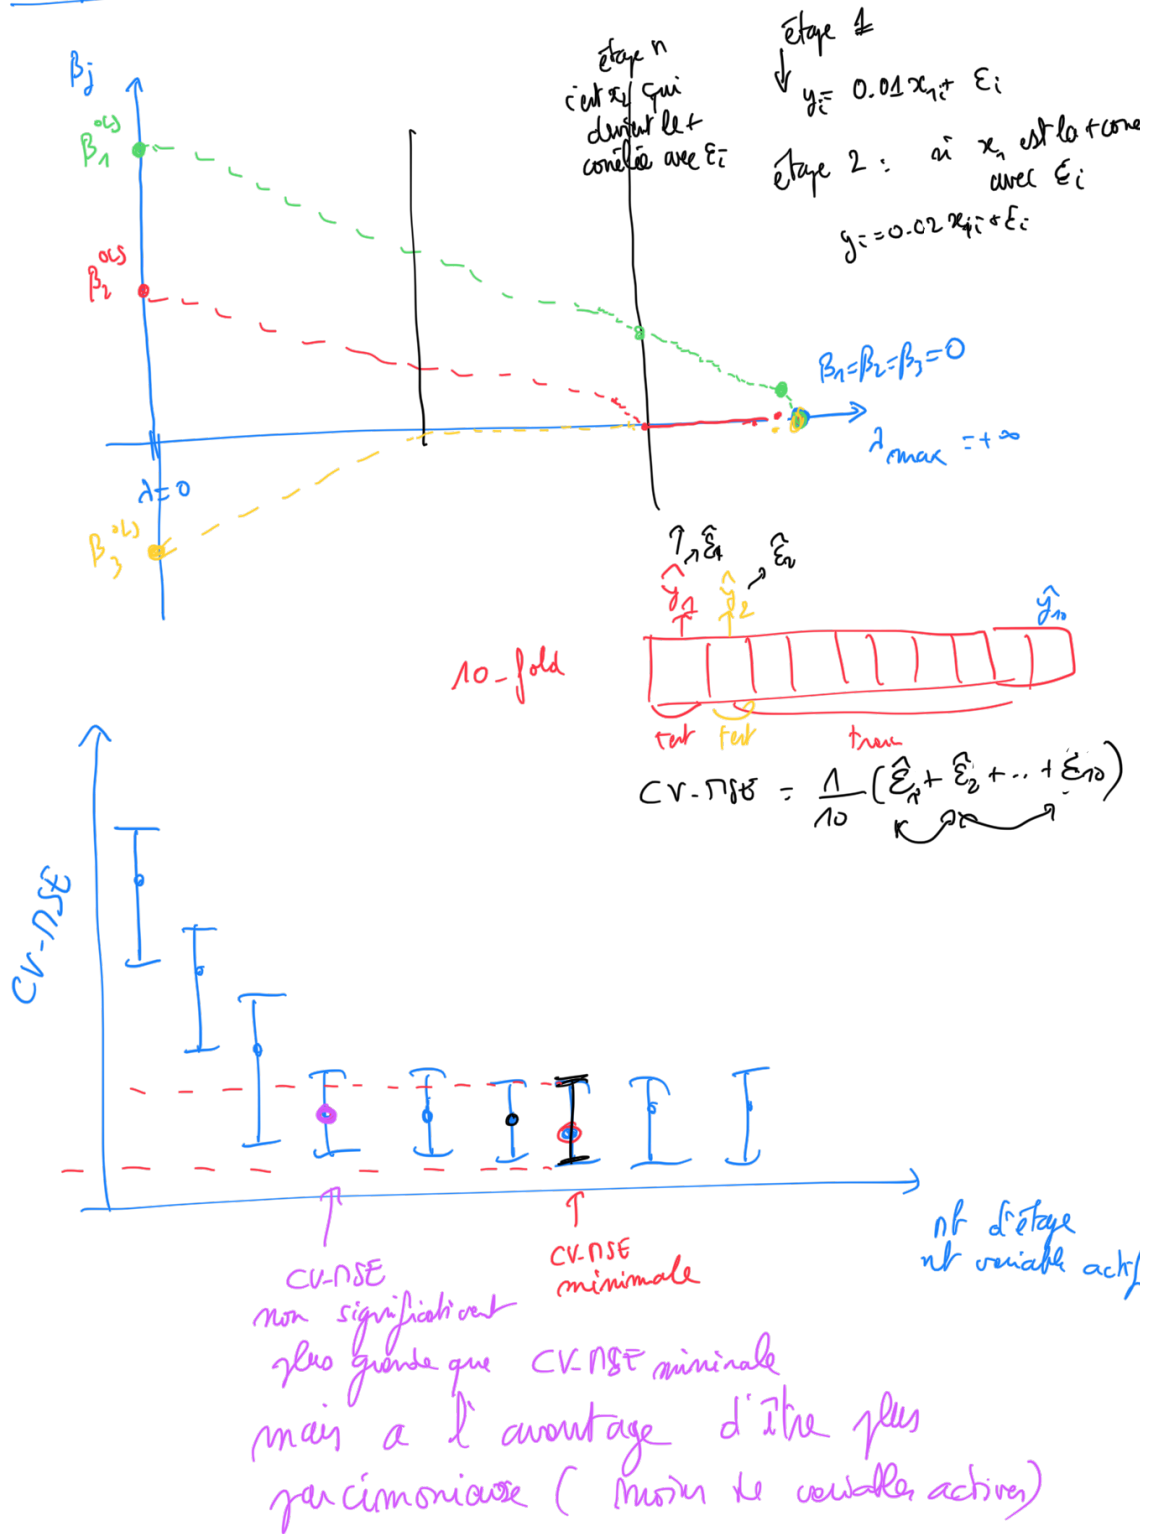 βj
β1^ols
β2^ols
β3^ols
λ=0
étape n
c'est x2 qui
devient le +
corrélée avec εi
étape 1
yi = 0.01 x1i + εi
étape 2 : si x1 est la + corre
avec εi
yi = 0.02 x1i + εi
β1=β2=β3=0
λmax = +∞
10-fold
ε̂1
ε̂2
ŷ1
ŷ2
ŷ10
test
test
train
CV-MSE = 1/10 (ε̂1 + ε̂2 + .. + ε̂10)
CV-MSE
nb d'étape
nb variable actif
CV-MSE
minimale
CV-MSE
non significativent
plus grande que CV-MSE minimale
mais a l'avantage d'être plus
parcimonieuse ( moins de variables actives)